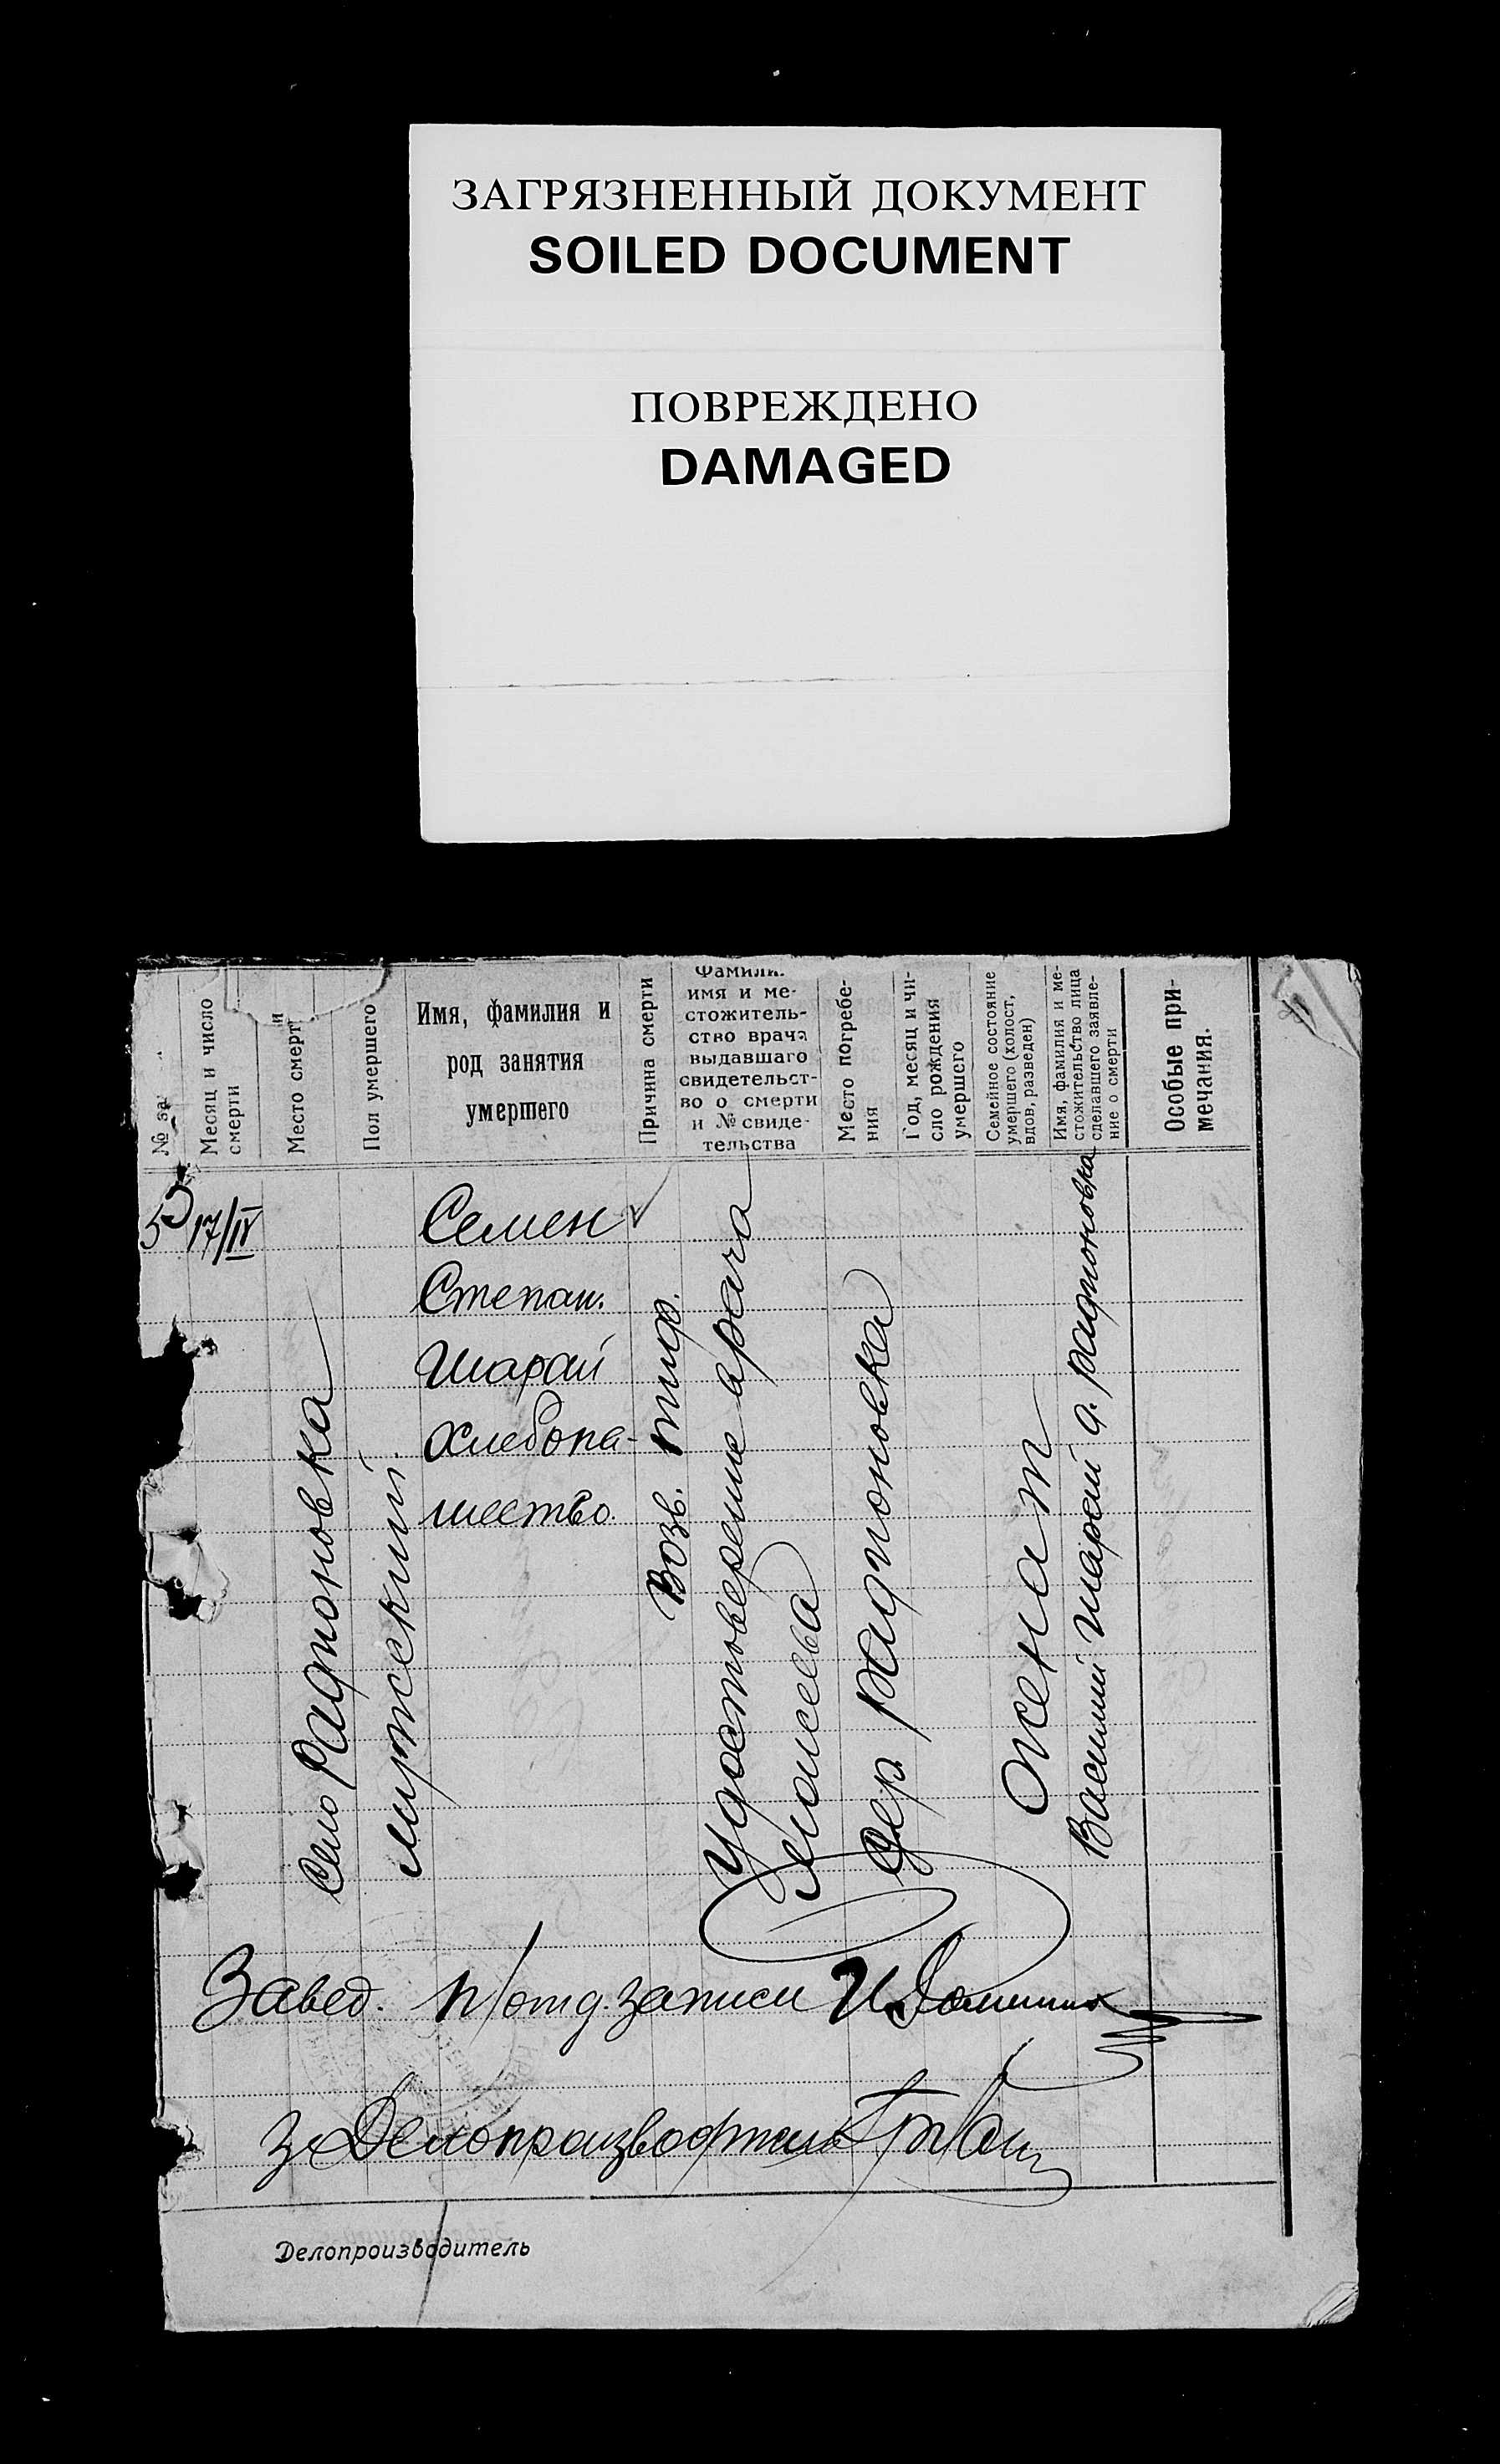 ЗАГРЯЗНЕННЫЙ ДОКУМЕНТ
SOILED DOCUMENT
ПОВРЕЖДЕНО
DAMAGED
№ за
Месяц и число
смерти
Место смерти
Пол умершего
Имя, фамилия и
род занятия
умершего
Причина смерти
Фамили.
имя и ме-
стожитель-
ство врача
выдавшаго
свидетельст-
во о смерти
и № свиде-
тельства
Место погребе-
ния
Год, месяц и чи-
сло рождения
умершего
Семейное состояние
умершего (холост,
вдов, разведен)
Имя, фамилия и ме-
стожительство лица
сделавшего заявле-
ние о смерти
Особые при-
мечания.
55
17/IV
Село Радионовка
мужский.
Семен
Степан.
Шарай
хлебопа-
шество.
Возв. тиф.
Удостоверение врача
Моисеева
дер. Радионовка
Женат
Василий Шарай д. Радионовка
Завед. п/отд. записи
Делопроизводитель
Делопроизводитель